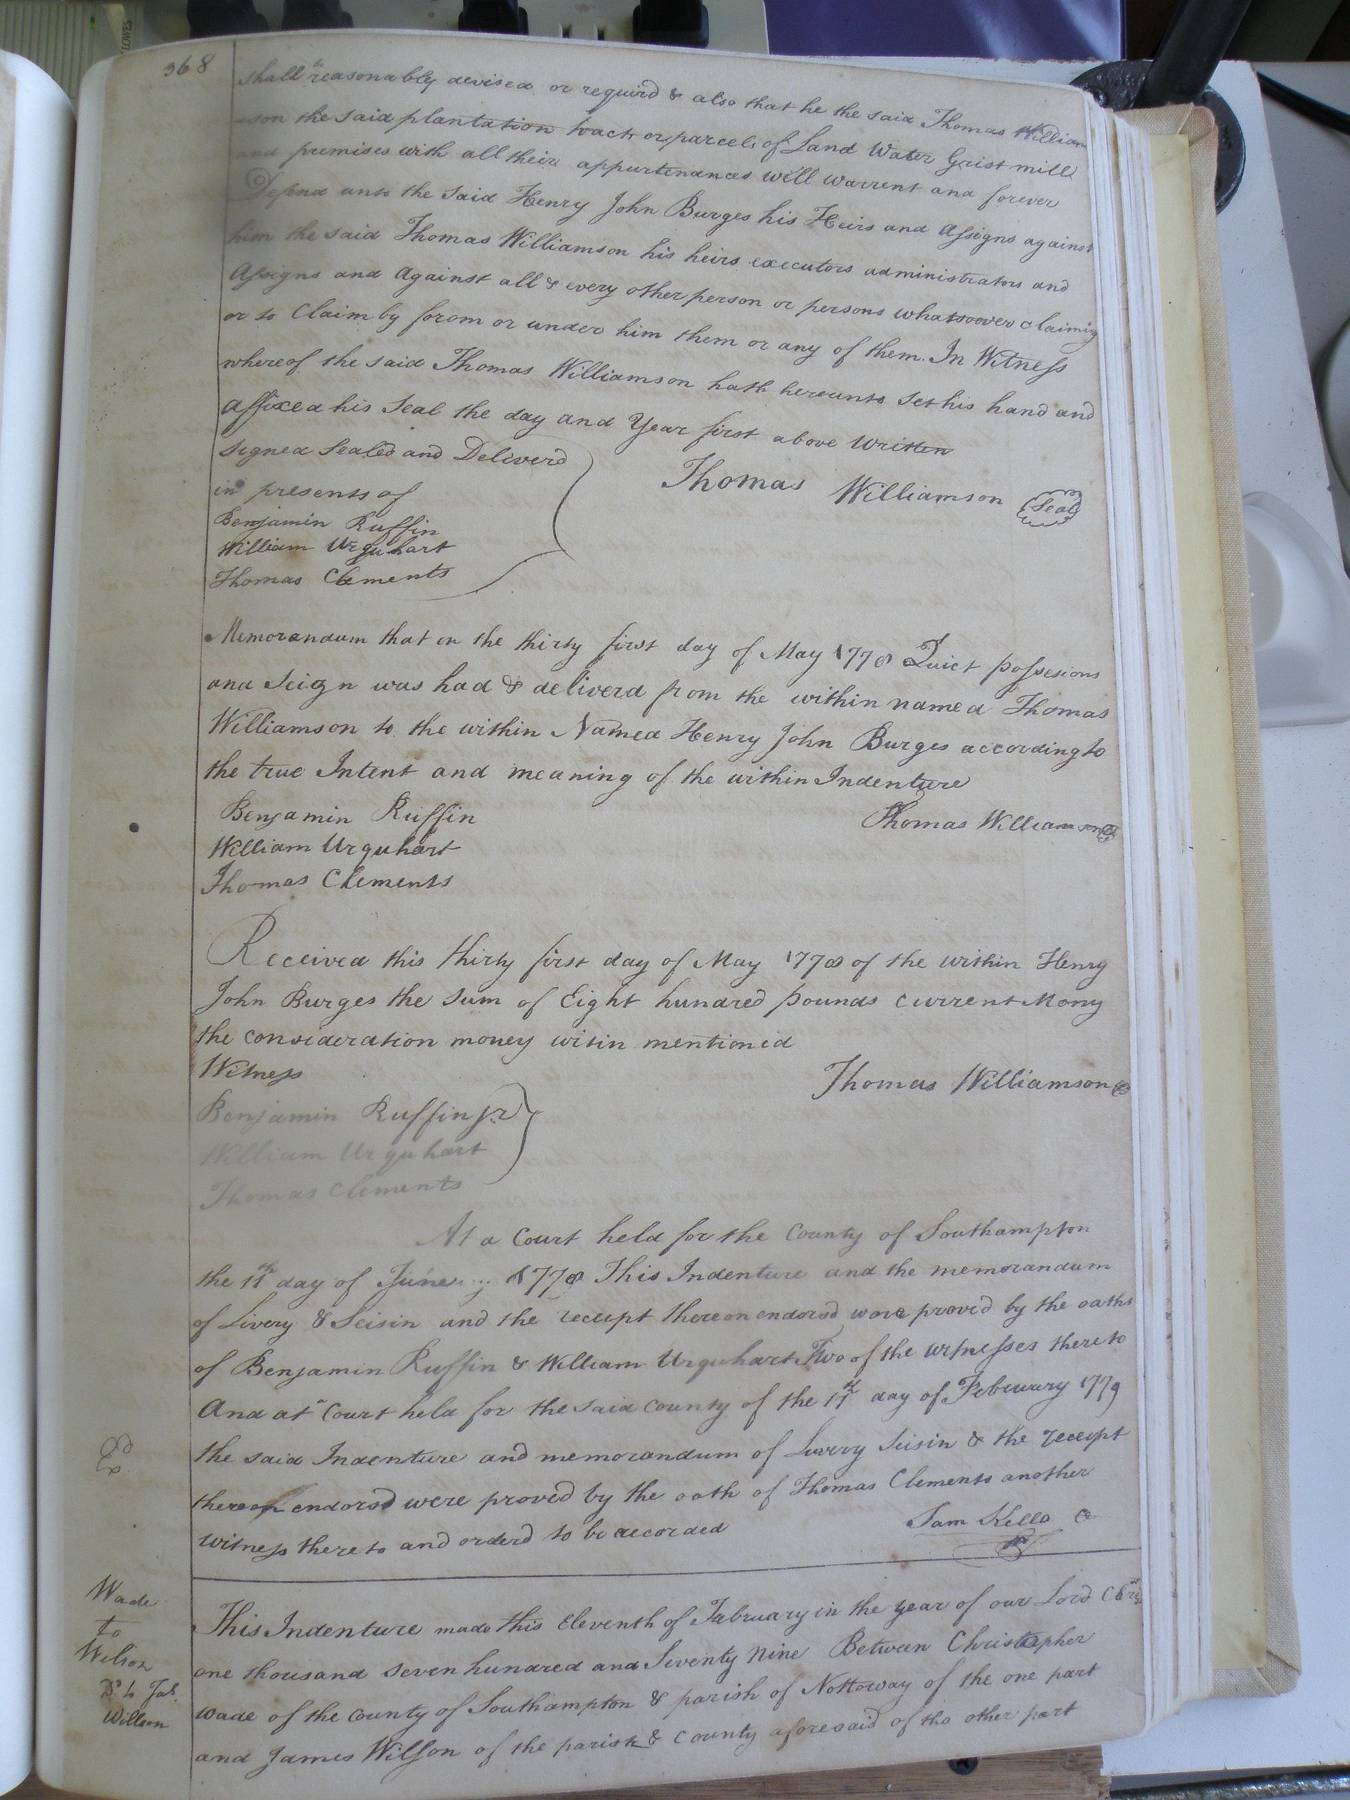 368
shall be reasonably devised or requird & also that he the said Thomas William
-son the said plantation tract or parcel of Land Water Grist mill
and premises with all their appurtenances will warrent and forever
Defend unto the said Henry John Burges his Heirs and Assigns against
him the said Thomas Williamson his heirs executors administrators and
Assigns and Against all & every other person or persons whatsoever claiming
or to Claim by from or under him them or any of them. In Witness
whereof the said Thomas Williamson hath hereunto set his hand and
affixed his Seal the day and Year first above Written
Signed Sealed and Deliverd
in presents of
Thomas Williamson (Seal)
Benjamin Ruffin
William Urquhart
Thomas Clements
Memorandum that on the thirty first day of May 1778 Quiet possesions
and Seign was had & deliverd from the within named Thomas
Williamson to the within Named Henry John Burges according to
the true Intent and meaning of the within Indenture
Benjamin Ruffin
Thomas Williamson
William Urquhart
Thomas Clements
Received this thirty first day of May 1778 of the within Henry
John Burges the Sum of Eight hundred pounds current Mony
the consideration money witin mentionid
Witness
Thomas Williamson
Benjamin Ruffin jr
William Urquhart
Thomas Clements
At a Court held for the County of Southampton
the 11th day of June 1778 This Indenture and the memorandum
of Livery & Seisin and the receipt thereon endorsd wore proved by the oaths
of Benjamin Ruffin & William Urquhart Two of the witnesses thereto
And at a Court held for the said county of the 11th day of February 1779
the said Indenture and memorandum of Livery Seisin & the receipt
thereon endorsd were proved by the oath of Thomas Clements another
witness thereto and orderd to be recorded
Sam Kello
Exd
Wade
to
Wilson
Dd to Jas.
Willson
This Indenture made this Eleventh of February in the year of our Lord Christ
one thousand seven hundred and Seventy Nine Between Christopher
wade of the County of Southampton & parish of Nottoway of the one part
and James Wilson of the parish & County aforesaid of the other part